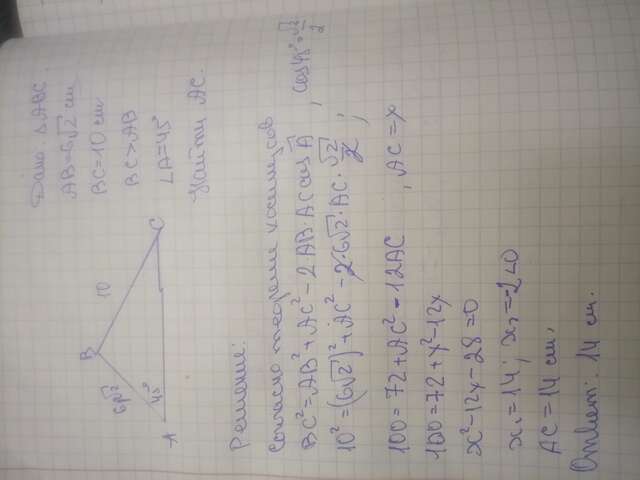 Дано: △ABC.
AB=6√2 см
BC=10 см
BC>AB
∠A=45°
Найти AC.
B
6√2
10
45°
A
C
Решение:
Согласно теореме косинусов
BC²=AB²+AC²-2·AB·AC cos A , cos45°=√2/2
10²=(6√2)²+AC²-2·6√2·AC·√2/2 ;
100=72+AC²-12AC , AC=x
100=72+x²-12x
x²-12x-28=0
x₁=14; x₂=-2<0
AC=14 см,
Ответ: 14 см.